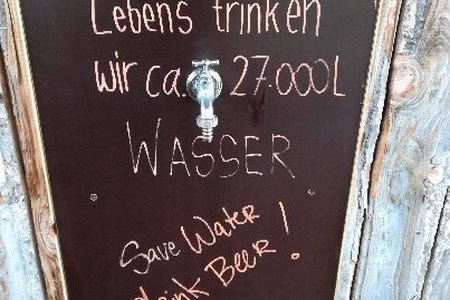 Lebens trinken
wir ca. 27.000L
WASSER
Save Water
drink Beer!